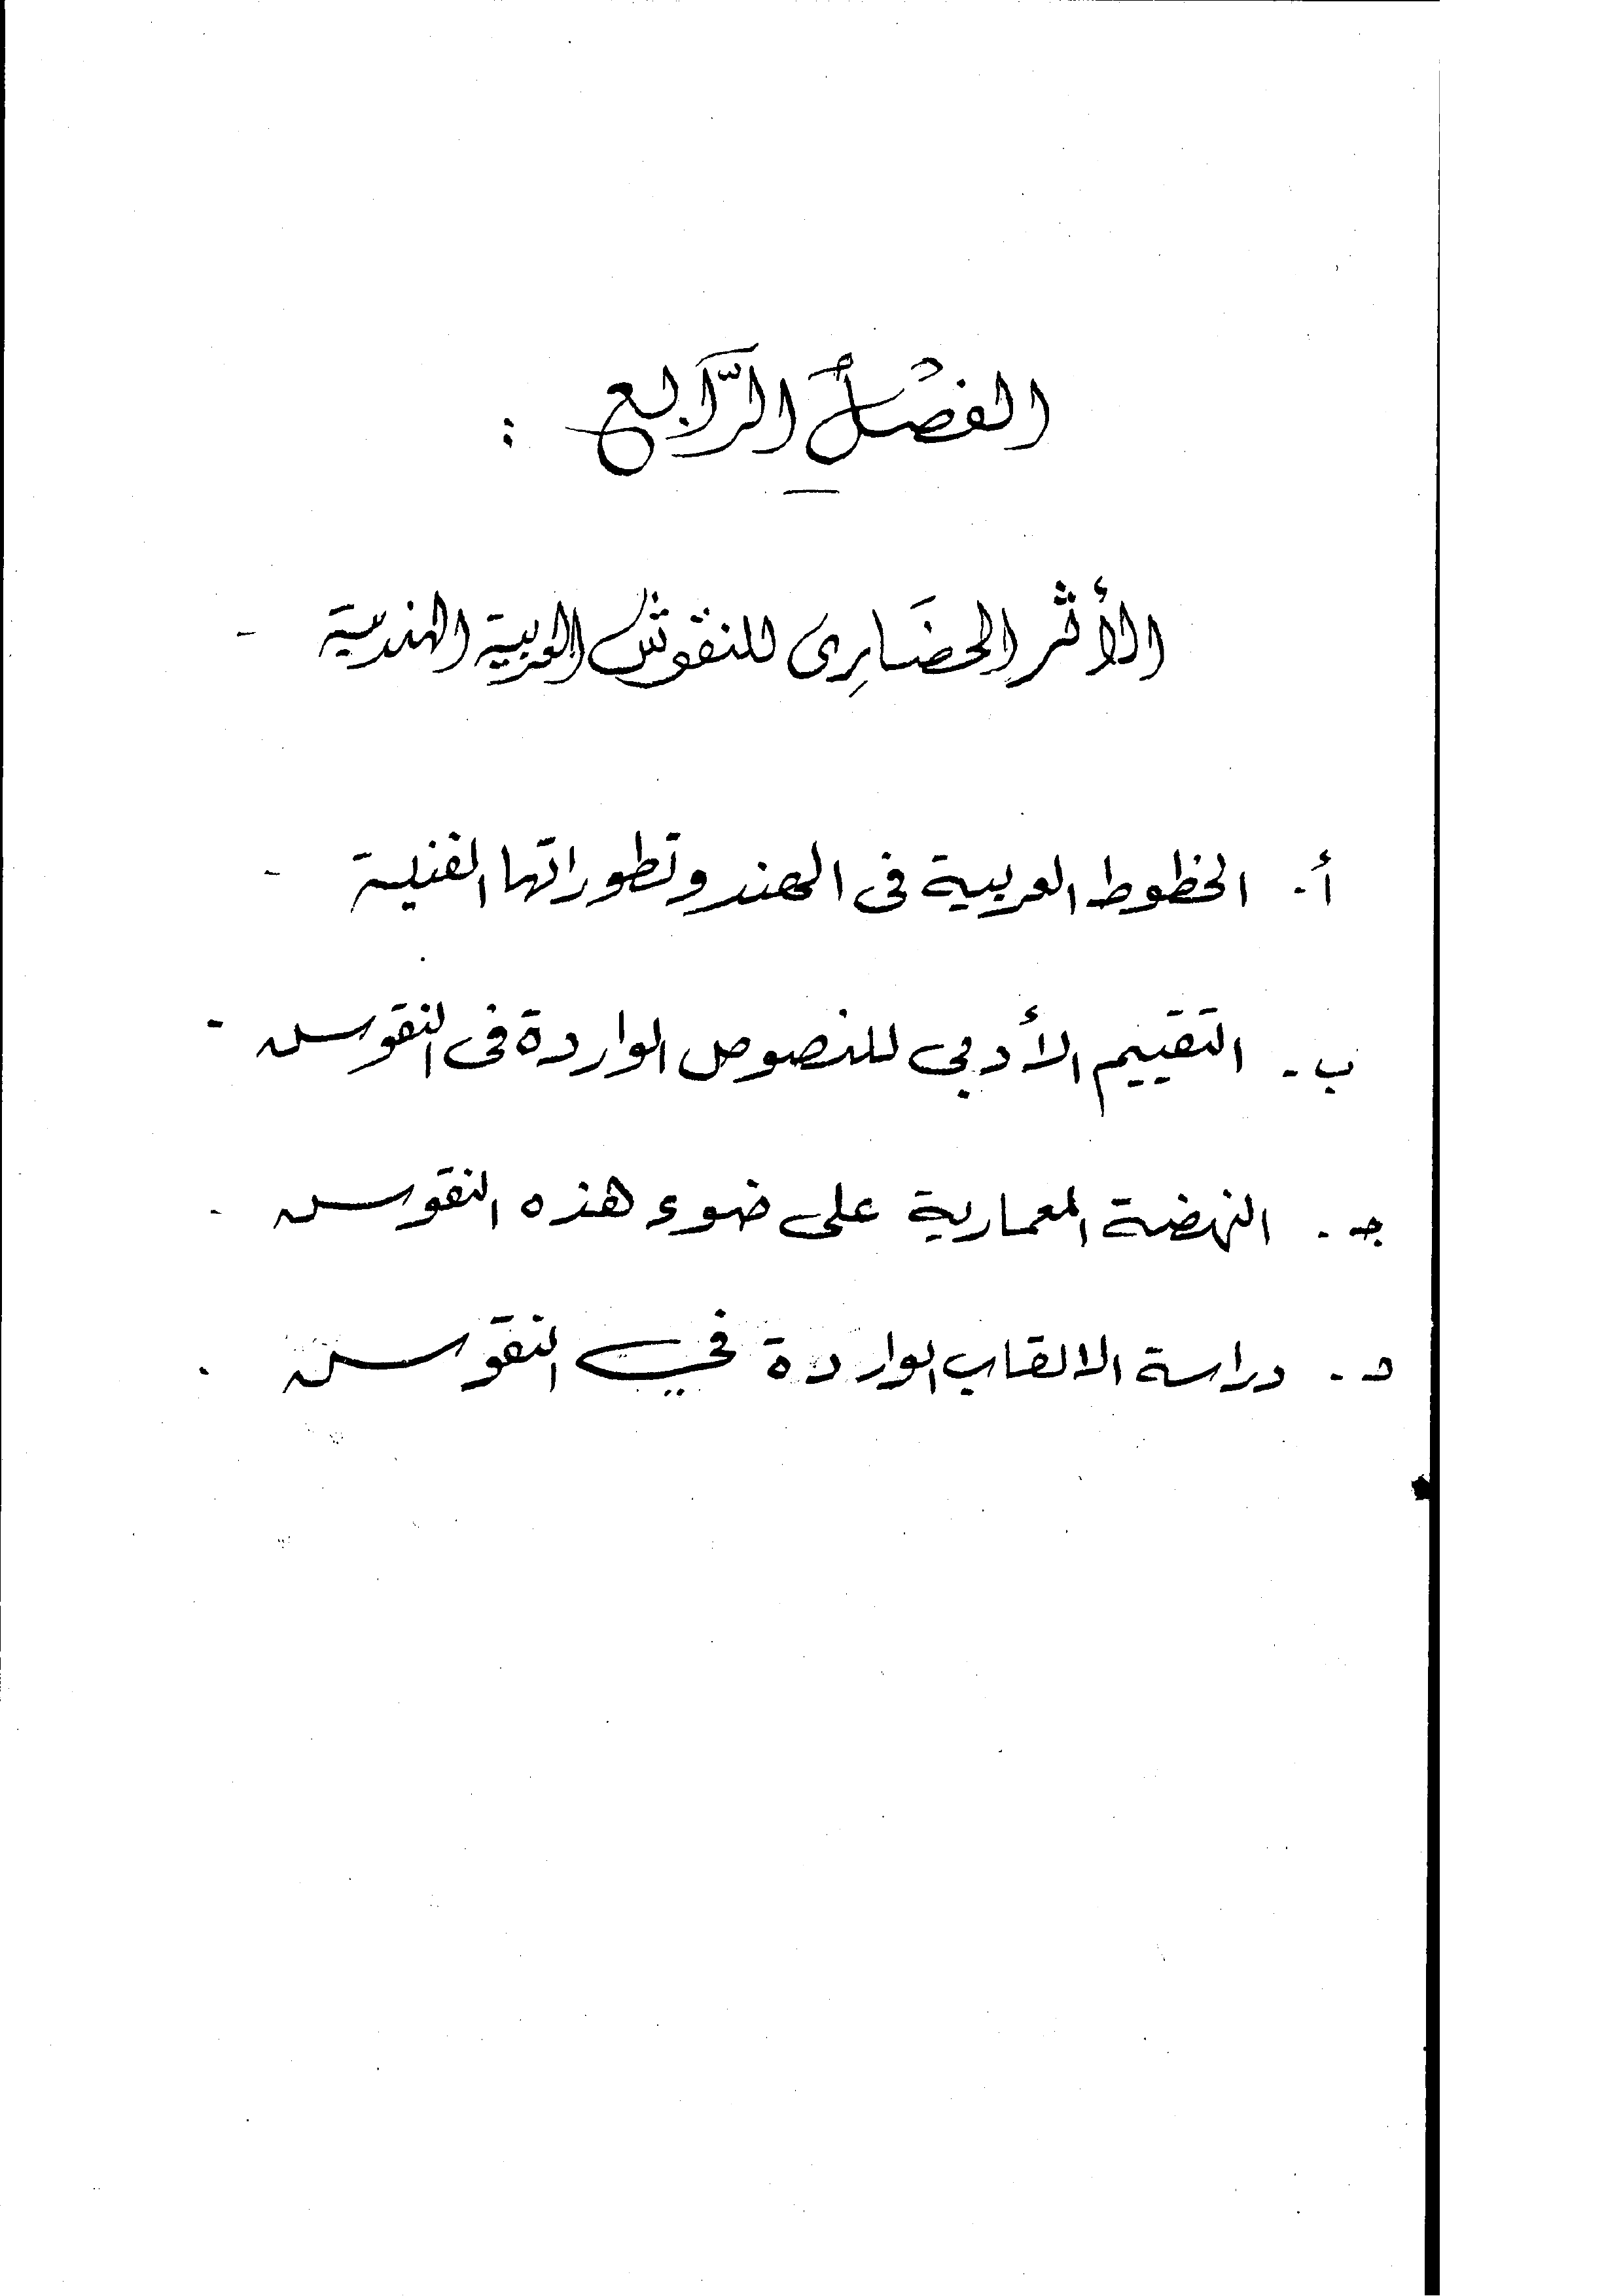 الفصْلُ الرَّابع :
الأثر الحضَارِى للنقوش العربية الهندية -
أ - الخطوط العربية فى الهند وتطوراتها الفنية -
ب - التقييم الأدبى للنصوص الواردة فى النقوس -
جـ - النهضة المعمارية على ضوء هذه النقوس -
د - دراسة الالقاب الواردة في النقوس -